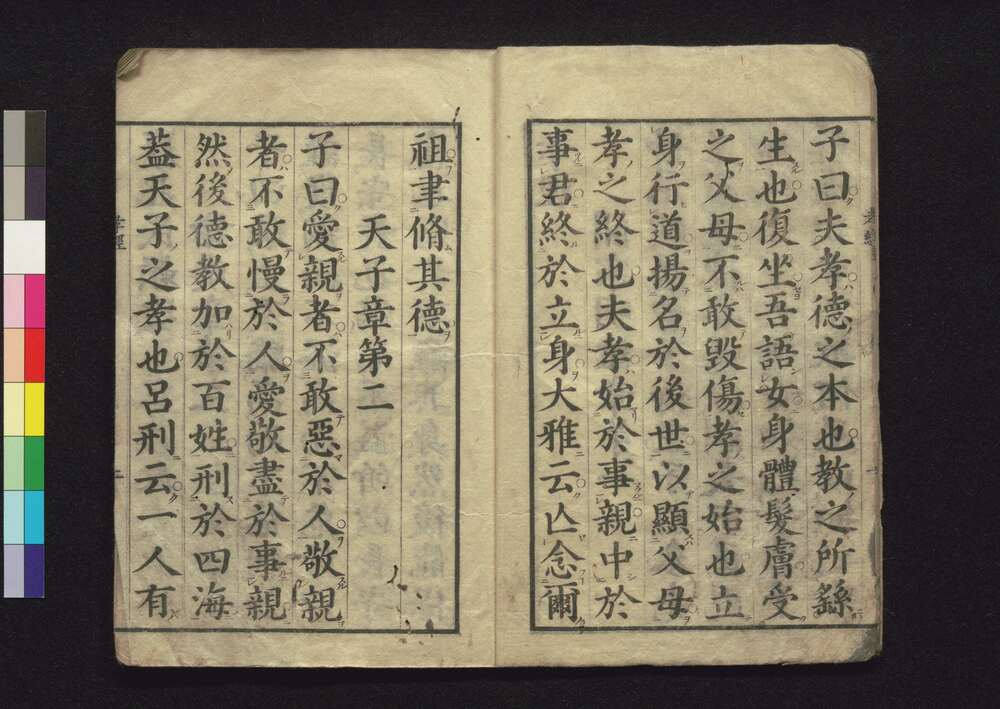 子曰夫孝德之本也教之所繇
生也復坐吾語女身體髮膚受
之父母不敢毀傷孝之始也立
身行道揚名於後世以顯父母
孝之終也夫孝始於事親中於
事君終於立身大雅云亾念爾
祖聿脩其德
天子章第二
子曰愛親者不敢惡於人敬親
者不敢慢於人愛敬盡於事親
然後德教加於百姓刑於四海
葢天子之孝也呂刑云一人有
孝經